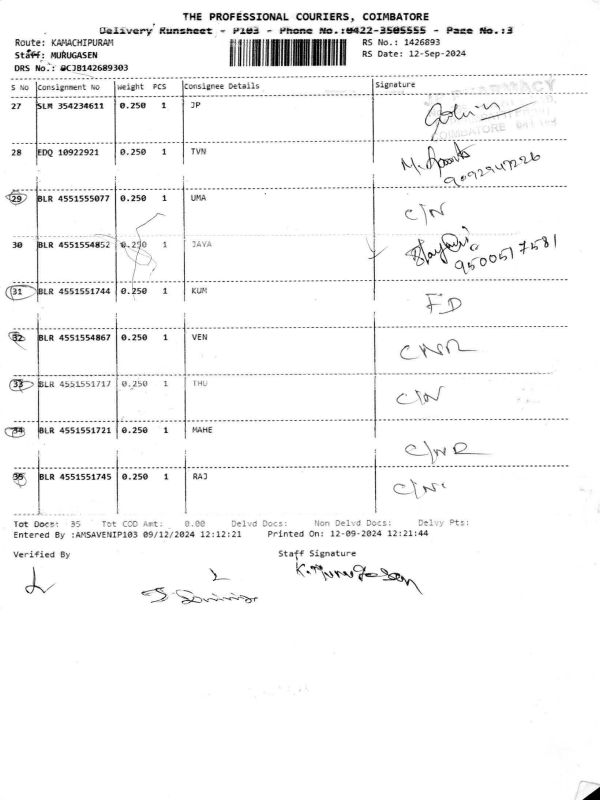 THE PROFESSIONAL COURIERS, COIMBATORE
Delivery Runsheet - P103 - Phone No.:0422-3505555 - Page No.:3
Route: KAMACHIPURAM
RS No.: 1426893
Staff: MURUGASEN
RS Date: 12-Sep-2024
DRS No.: 0CJB142689303
S No Consignment No Weight PCS Consignee Details Signature
27 SLM 354234611 0.250 1 JP
PHARMACY
COIMBATORE
28 EDQ 10922921 0.250 1 TVN
29 BLR 4551555077 0.250 1 UMA C/N
30 BLR 4551554852 0.250 1 JAYA
9500517581
31 BLR 4551551744 0.250 1 KUM FD
32 BLR 4551554867 0.250 1 VEN CNR
33 BLR 4551551717 0.250 1 THU C/N
34 BLR 4551551721 0.250 1 MAHE C/NR
35 BLR 4551551745 0.250 1 RAJ C/N
Tot Docs: 35 Tot COD Amt: 0.00 Delvd Docs: Non Delvd Docs: Delvy Pts:
Entered By :AMSAVENIP103 09/12/2024 12:12:21 Printed On: 12-09-2024 12:21:44
Verified By Staff Signature
K. Murugesan